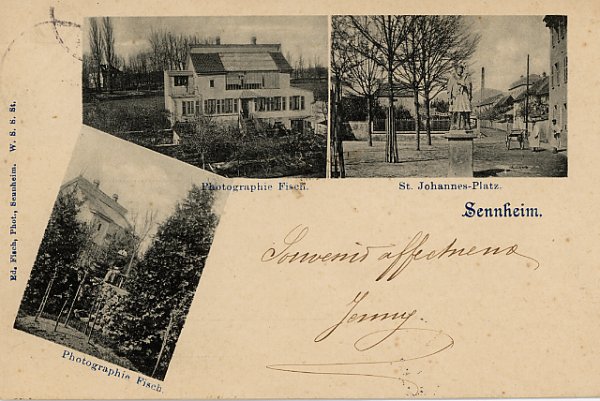 Photographie Fisch.
St. Johannes-Platz.
Sennheim.
Souvenir affectueux
Jenny.
Photographie Fisch.
Ed. Fisch, Phot., Sennheim. W. S. S. St.